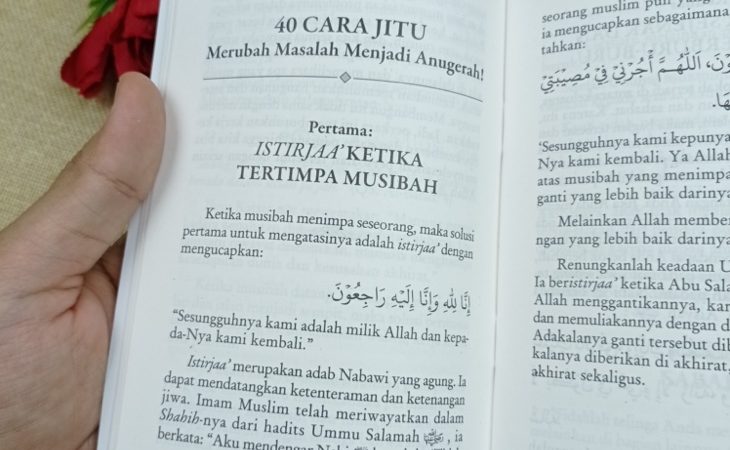 40 CARA JITU
Merubah Masalah Menjadi Anugerah!
Pertama:
ISTIRJAA' KETIKA
TERTIMPA MUSIBAH
Ketika musibah menimpa seseorang, maka solusi
pertama untuk mengatasinya adalah istirjaa' dengan
mengucapkan:
إِنَّا لِلّٰهِ وَإِنَّا إِلَيْهِ رَاجِعُوْنَ.
"Sesungguhnya kami adalah milik Allah dan kepa-
da-Nya kami kembali."
Istirjaa' merupakan adab Nabawi yang agung. Ia
dapat mendatangkan ketenteraman dan ketenangan
jiwa. Imam Muslim telah meriwayatkan dalam
Shahih-nya dari hadits Ummu Salamah, ia
berkata: "Aku mendengar Nabi
seorang muslim pun yang
ia mengucapkan sebagaimana
tahkan:
اَللّٰهُمَّ أْجُرْنِيْ فِيْ مُصِيْبَتِيْ
'Sesungguhnya kami kepunya
Nya kami kembali. Ya Allah
atas musibah yang menimpa
ganti yang lebih baik darinya
Melainkan Allah member
ngan yang lebih baik darinya
Renungkanlah keadaan U
Ia beristirjaa' ketika Abu Sala
Allah menggantikannya, kar
dan memuliakannya dengan d
Adakalanya ganti tersebut dib
kalanya diberikan di akhirat,
akhirat sekaligus.